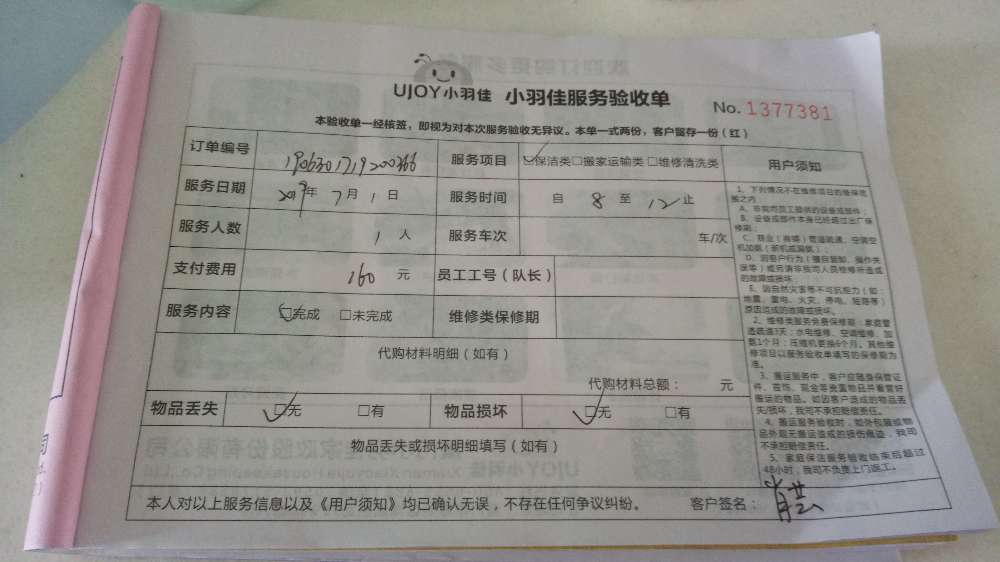 UJOY小羽佳 小羽佳服务验收单 No. 1377381
本验收单一经核签，即视为对本次服务验收无异议。本单一式两份，客户留存一份（红）
订单编号 190630171920366 服务项目 保洁类 □搬家运输类 □维修清洗类
服务日期 2019年 7月 1日 服务时间 自 8 至 12 止
服务人数 1 人 服务车次 车/次
支付费用 160 元 员工工号（队长）
服务内容 □完成 □未完成 维修类保修期
代购材料明细（如有）
代购材料总额： 元
物品丢失 □无 □有 物品损坏 □无 □有
物品丢失或损坏明细填写（如有）
本人对以上服务信息以及《用户须知》均已确认无误，不存在任何争议纠纷。 客户签名：
用户须知
1、下列情况不在维修项目的维保范
围之内
A、非我司员工提供的设备或部件；
B、设备或部件本身已经超过出厂保
修期；
D、因客户行为（擅自复卸、操作失
误等）或另请非我司人员检修所造成
的故障或损坏
E、因自然灾害等不可抗能力（如：
地震、雷电、火灾、停电、短路等）
原因造成的故障或损坏。
2、维修类服务免费保修期：家庭管
道疏通3天；水电维修、空调维修、加
氨1个月；压缩机更换6个月。其他维
修项目以服务验收单填写的保修期为
准。
3、搬运服务中，客户应随身保管证
件、首饰、现金等贵重物品并看管好
搬运的物品。如因客户造成的物品丢
失/损坏，我司不承担赔偿责任。
4、搬运服务验收时，如外包装或物
品外观无搬运造成的损伤痕迹，我司
不承担赔偿责任。
5、家庭保洁服务验收结束后超过
48小时，我司不负责上门返工。